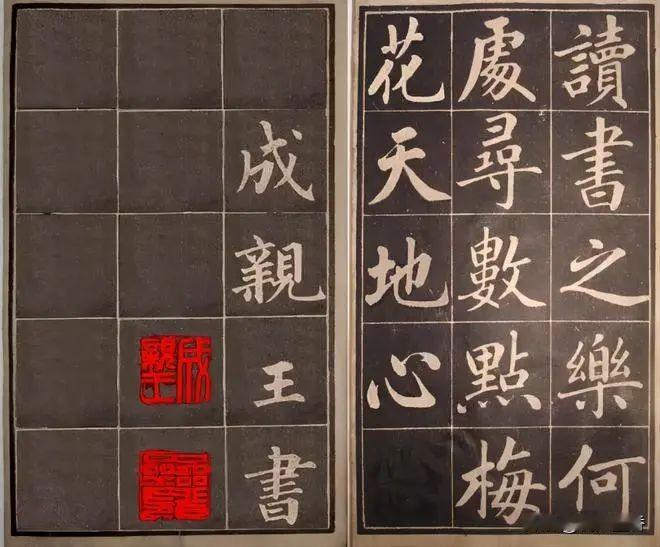 讀書之樂何
處尋數點梅
花天地心
成親王書
成親王